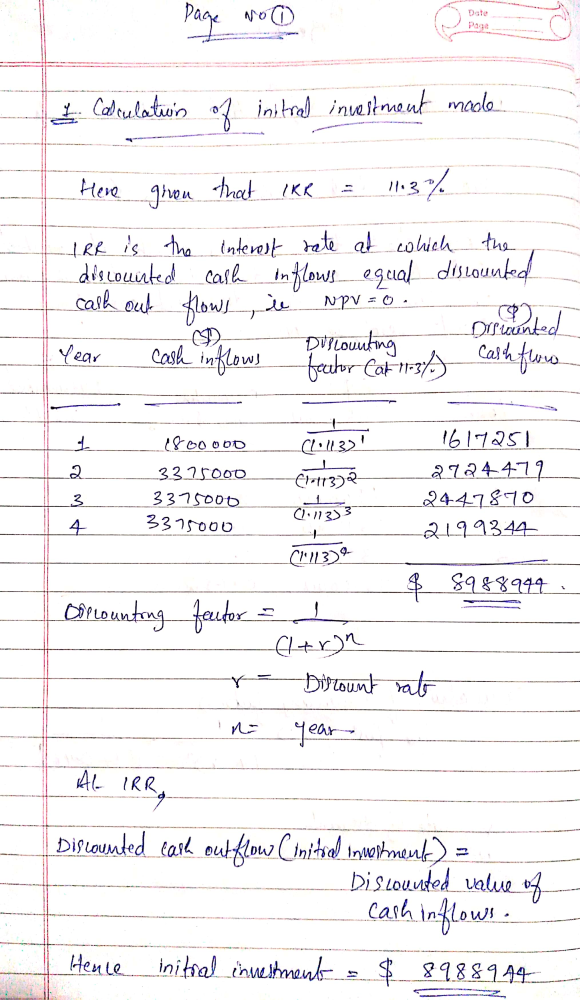 Page No ①
Date
Page
1. Calculation of initial investment made.
Here given that IRR = 11.3%
IRR is the interest rate at which the
discounted cash inflows equal discounted
cash out flows, ie NPV = 0.
Year ($) Cash inflows Discounting factor (at 11.3%) ($) Discounted Cash flow
1 1800000 1/(1.113)1 1617251
2 3375000 1/(1.113)2 2724479
3 3375000 1/(1.113)3 2447870
4 3375000 1/(1.113)4 2199344
$ 8988944.
Discounting factor = 1/(1+r)n
r = Discount rate
n = year
At IRR,
Discounted cash outflow (initial investment) =
Discounted value of
Cash inflows.
Hence initial investment = $ 8988944